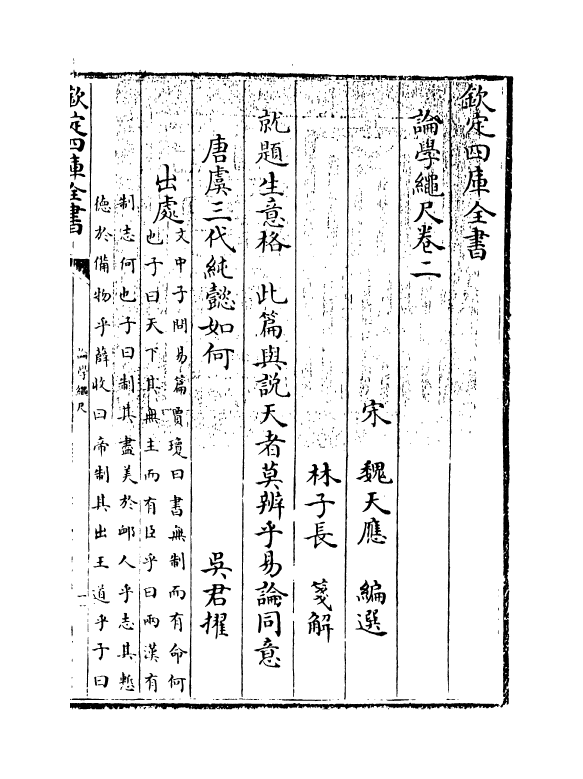 欽定四庫全書
論學繩尺卷二
宋 魏天應 編選
林子長 箋解
就題生意格 此篇與說天者莫辨乎易論同意
唐虞三代純懿如何 吳君擢
出處文中子問易篇賈瓊曰書無制而有命何
也子曰天下其無主而有臣乎曰兩漢有
制志何也子曰制其盡美於䘏人乎志其慙
德於備物乎薛收曰帝制其出王道乎子曰
欽定四庫全書
論學繩尺
一